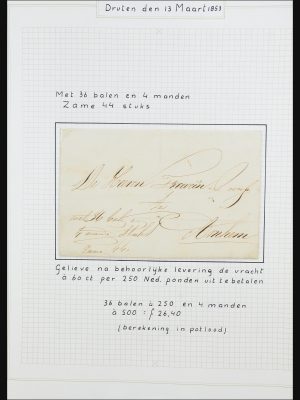 Druten den 13 Maart 1853
Met 36 balen en 4 manden
Zame 44 stuks
De Heeren
te
Arnhem
Gelieve na behoorlijke levering de vracht
à 60 ct per 250 Ned. ponden uit te betalen
36 balen à 250 en 4 manden
à 500 = ƒ 26,40
(berekening in potlood)